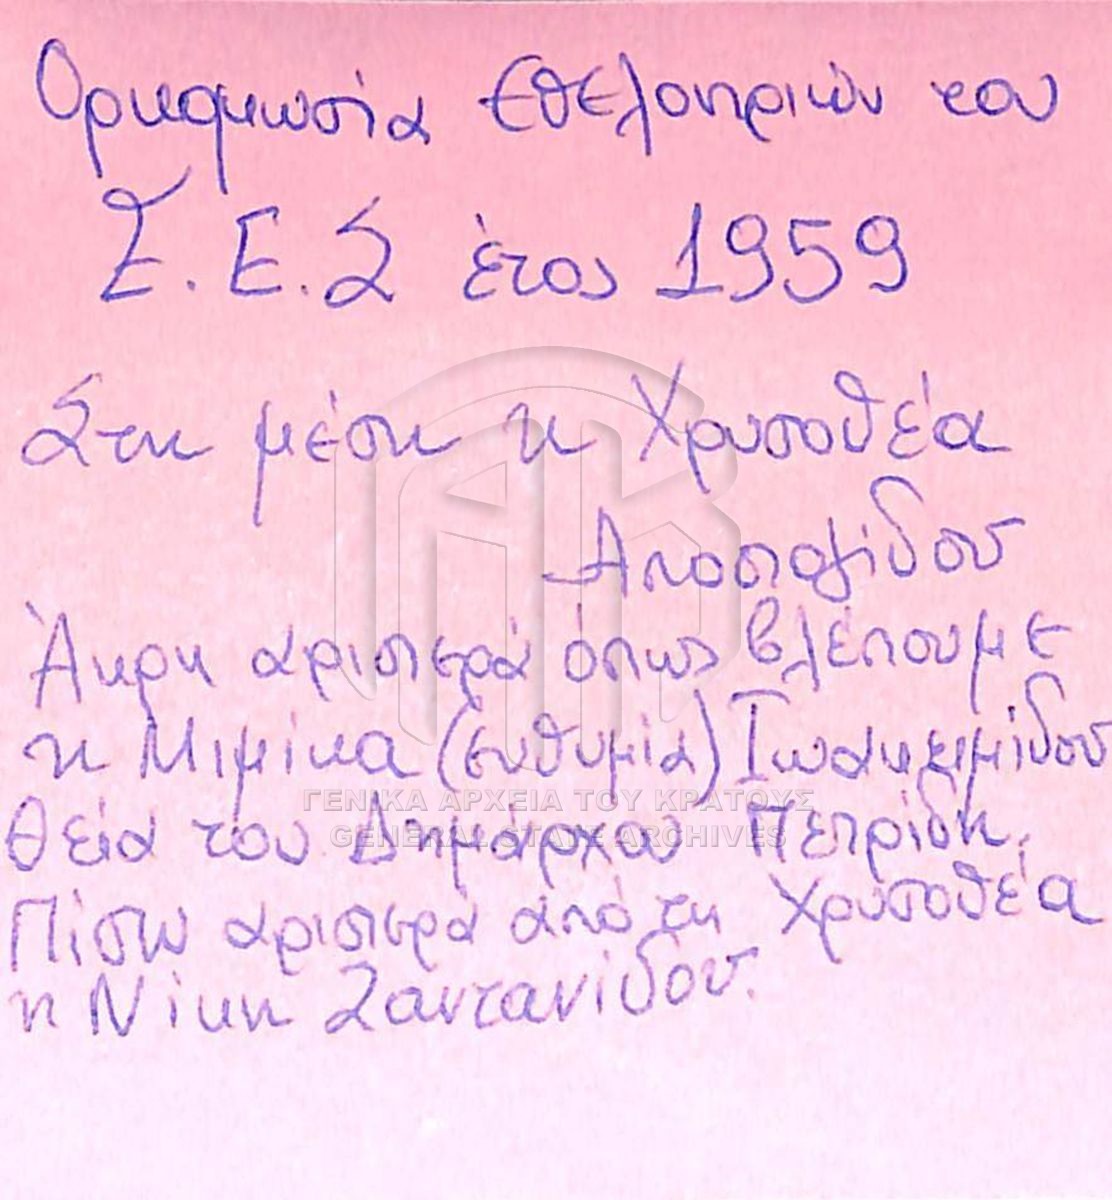 Ορκομωσία Εθελοντριών του
Σ.Ε.Σ έτος 1959
Στη μέση η Χρυσοθέα
Αποστολίδου
Άκρη αριστερά όπως βλέπουμε
η Μιμίκα (ευθυμία) Ιωακειμίδου
ΓΕΝΙΚΑ ΑΡΧΕΙΑ ΤΟΥ ΚΡΑΤΟΥΣ
θεία του Δημάρχου Πετρίδη.
GENERAL STATE ARCHIVES
Πίσω αριστερά από τη Χρυσοθέα
η Νίκη Ζαντανίδου.